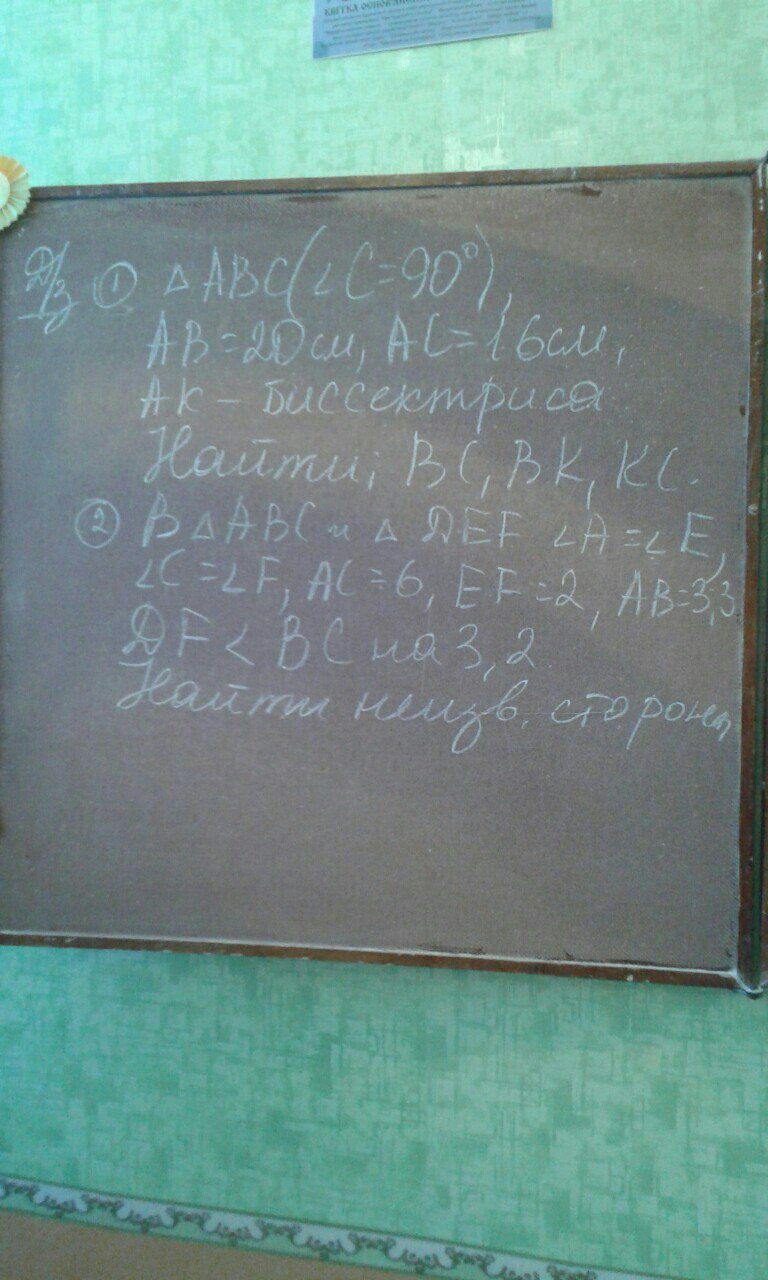 КВІТКА ОСНОВ'ЯНЕНКО
Д/З ① △ ABC (∠C=90°),
AB=20см, AC=16см,
AK – биссектриса
Найти: BC, BK, KC.
② В △ ABC и △ DEF ∠A=∠E,
∠C=∠F, AC=6, EF=2, AB=3,3
DF < BC на 3,2
Найти неизв. стороны